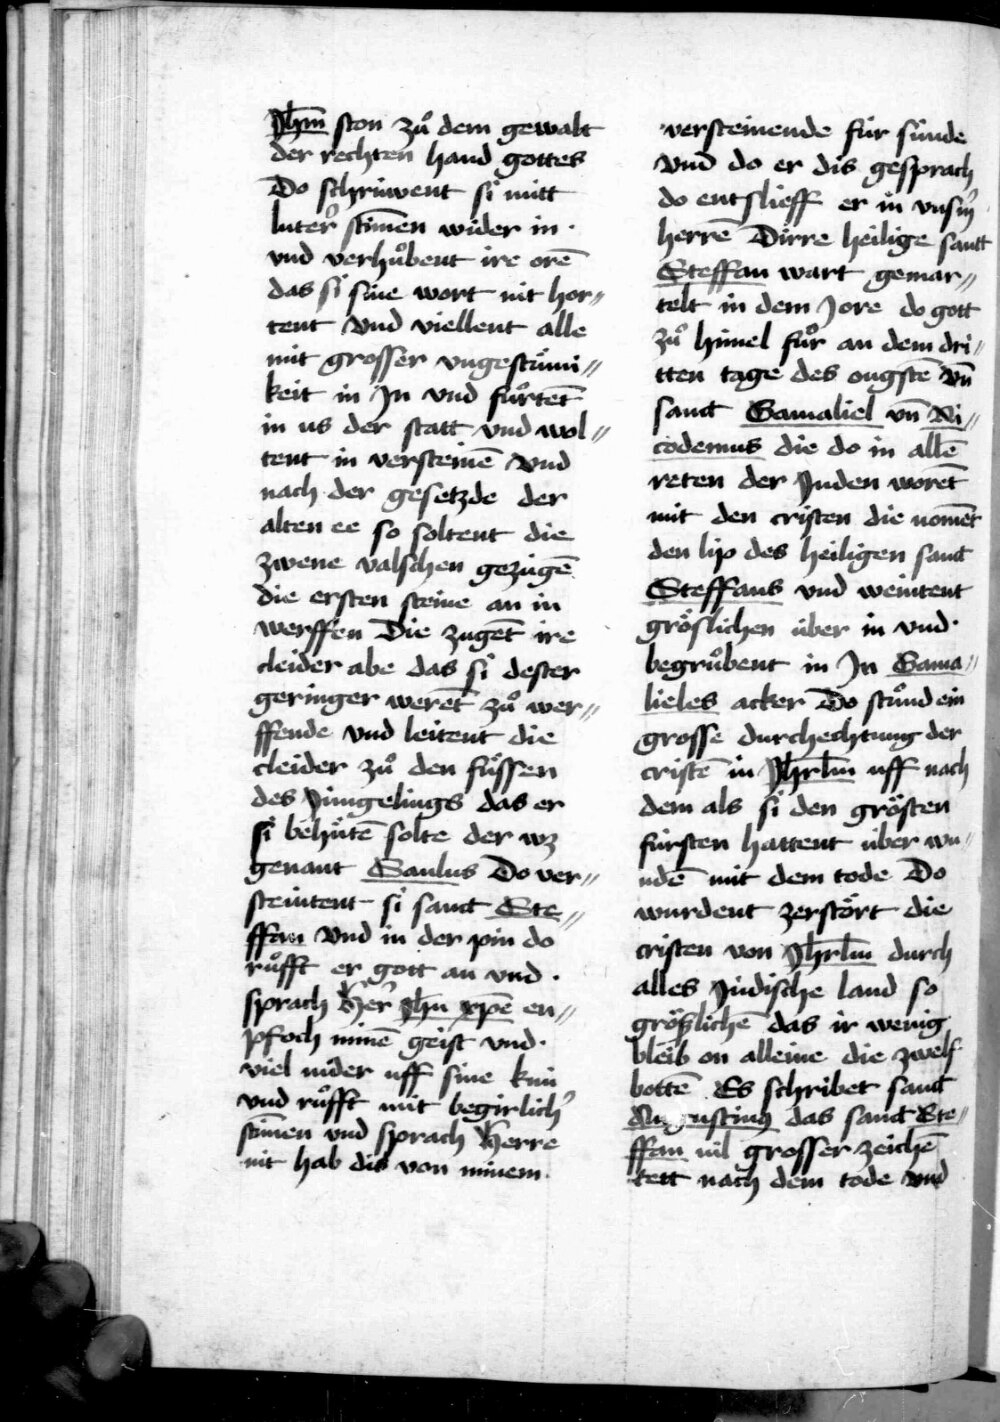 Jhm̄ ston zuͦ dem gewalt
der rechten hand gottes
Do schriuwent si mitt
luter̉ stīmen wider in ·
vnd verhuͦbent ire orē
das si sine wort nit hor〃
tent Vnd viellent alle
mit grosser vngestuͤmi〃
keit in Jn vnd fuͦrtēt
in us der statt vnd wol〃
tent in versteinē Vnd
nach der gesetzde der
alten ee so soltent die
zwene valschen gezugē
die ersten steine an in
werffen Die zugēt ire
cleider abe das si dester
geringer werēt zuͦ wer〃
ffende vnd leitent die
cleider zuͦ den fuͤssen
des Jungelings das er
si behuͤtē solte der wz
genant Saulus Do ver〃
steintent si sanct Ste〃
ffan Vnd in der pin do
ruͦfft er gott an vnd ·
sprach Her̉ jhū xp̄e en〃
pfoch minē geist vnd ·
viel nider uff sine knú
vnd ruͦfft mit begirlich̉
stīmen vnd sprach Herre
nit hab dis von minem
versteinende fúr súnde
Vnd do er dis gesprach
do entslieff er in vnsm̉
herrē Dirre heilige sanct
Steffan wart gemar〃
telt in dem Jore do gott
zuͦ himel fuͦr an dem dri〃
tten tage des ougstē Vn̄
sanct Gamaliel vn̄ Ni〃
codemus die do in allē
reten der Juden worēt
mit den cristen die nomēt
den lip des heiligen sanct
Steffans vnd weintent
gröslichen über in vnd ·
begruͦbent in Jn Gama〃
lieles acker Do stuͦnd ein
grosse durchechtung der
cristē in Jhrlm̄ uff nach
dem als si den grösten
fürsten hattent über wu〃
ndē mit dem tode Do
wurdent zerstört die
cristen von Jhrlm̄ durch
alles Júdische land so
gröslichē das ir wenig
bleib on alleine die zwelf
bottē Es schribet sanct
Augustinus das sanct Ste〃
ffan uil grosser zeichē
tett nach dem tode Vnd